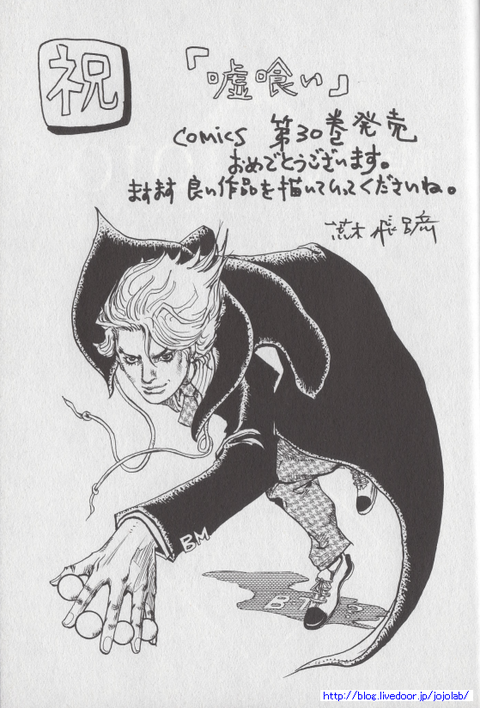 祝
「嘘喰い」
comics 第30巻発売
おめでとうございます。
ますます 良い作品を描いていってくださいね。
荒木飛呂彦
BM
http://blog.livedoor.jp/jojolab/